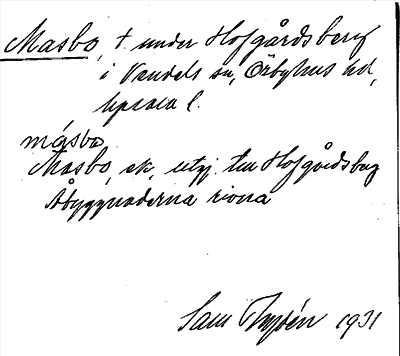 Masbo, t. under Hofgårdsberg
i Vendels sn, Örbyhus hd,
Upsala l.
másbo
Måsbo, sk. utgj. till Hofgårdsberg
Åbyggnaderna rivna
Sam 1931